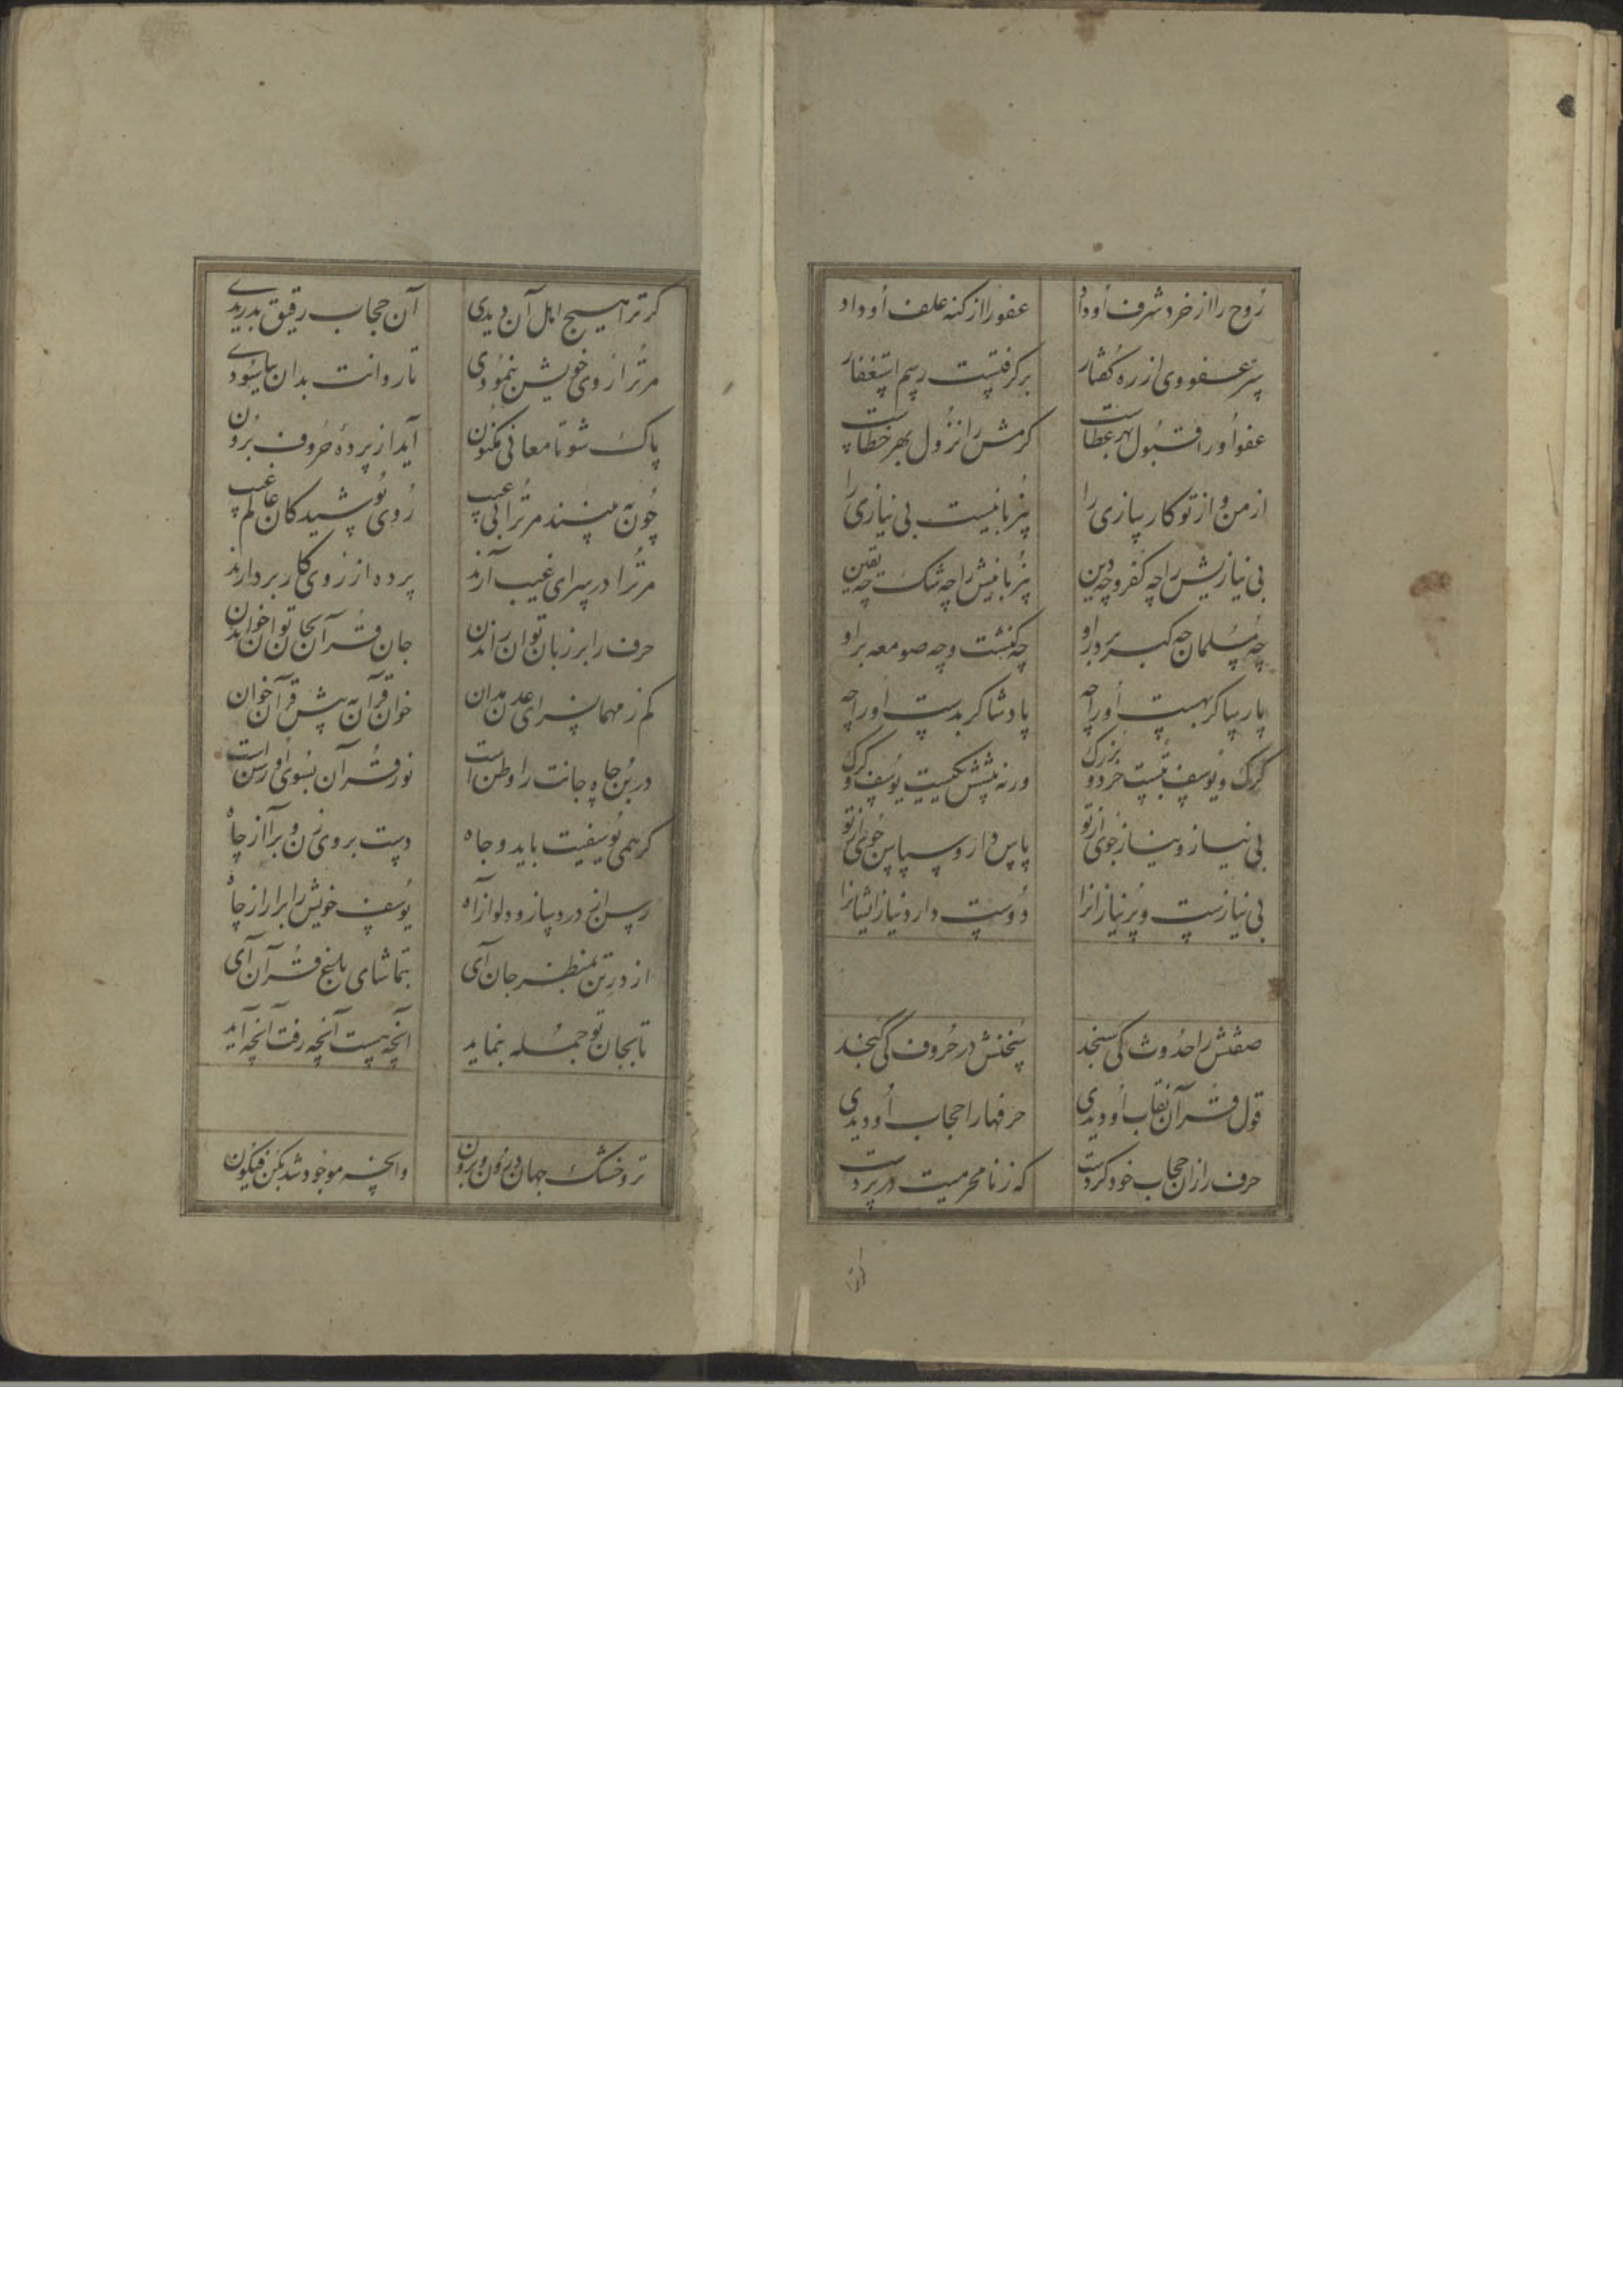 روح را از خرد شرف او داد عفو را از گنه علف او داد
سرعفو وی از ره گفتار برگرفتست رسم استغفار
عفو او را قبول بهر عطاست کرمش را نزول بهر خطاست
از من و از تو کارسازی را بزبانیست بی نیازی را
بی نیازیش را چه کفر و چه دین بزبانیش را چه شک چه یقین
چه مسلمان چه گبر بر در او چه کنشت و چه صومعه بر او
پارسا گر بهست او را چه پادشا گر بدست او را چه
گرگ و یوسف بتست خرد و بزرگ ورنه پیشش یکیست یوسف و گرگ
بی نیاز و نیاز جوی از تو پاس دار و سپاس خوی از تو
بی نیازست و پر نیازانرا دوست دارد نیاز ایشانرا
صفتش را حدوث کی سنجد سخنش در حروف کی گنجد
قول قرآن نقاب او دیدی حرفها را حجاب او دیدی
حرف را زان حجاب خود کردست که ز نامحرمیت در پردست
گر ترا هیچ اهل آن دیدی آن حجاب رقیق بدریدی
مر ترا روی خویش بنمودی تا روانت بدان بیاسودی
پاک شو تا معانی مکنون آید از پرده حروف برون
چون ببینند مر ترا بی عیب روی پوشیدگان عالم غیب
مر ترا در سرای غیب آرند پرده از روی کار بردارند
حرف را بر زبان توان راندن جان قرآن بجان توان خواندن
کم ز مهمانسرای عدن مدان خوان قرآن به پیش قرآن خوان
در بن چاه جانت را وطن است نور قرآن بسوی او رسن است
گر همی یوسفیت باید و جاه دست بروی زن و برآ از چاه
رسن از درد ساز و دلو از آه یوسف خویش را برآر از چاه
از در تن بمنظر جان آی بتماشای باغ قرآن آی
تا بجان تو جمله بنماید آنچه هست آنچه رفت آنچه آید
تر و خشک جهان درون و برون وانچه موجود شد بکن فیکون